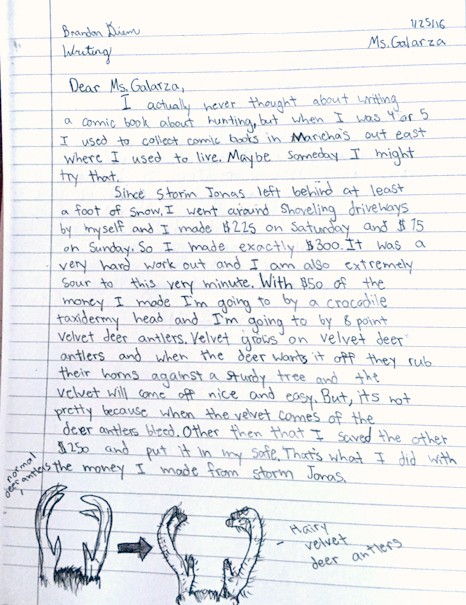 Brandon Diem
1/25/16
Writing
Ms. Galarza
Dear Ms. Galarza,
I actually never thought about writing
a comic book about hunting, but when I was 4 or 5
I used to collect comic books in out east
where I used to live. Maybe someday I might
try that.
Since Storm Jonas left behind at least
a foot of snow, I went around shoveling driveways
by myself and I made $225 on Saturday and $75
on Sunday. So I made exactly $300. It was a
very hard work out and I am also extremely
sour to this very minute. With $50 of the
money I made I'm going to by a crocodile
taxidermy head and I'm going to by 8 point
velvet deer antlers. Velvet grows on velvet deer
antlers and when the deer wants it off they rub
their horns against a sturdy tree and the
velvet will come off nice and easy. But, its not
pretty because when the velvet comes of the
deer antlers bleed. Other then that I saved the other
$250 and put it in my safe. That's what I did with
the money I made from storm Jonas.
normal
deer antlers
- Hairy
velvet
deer antlers